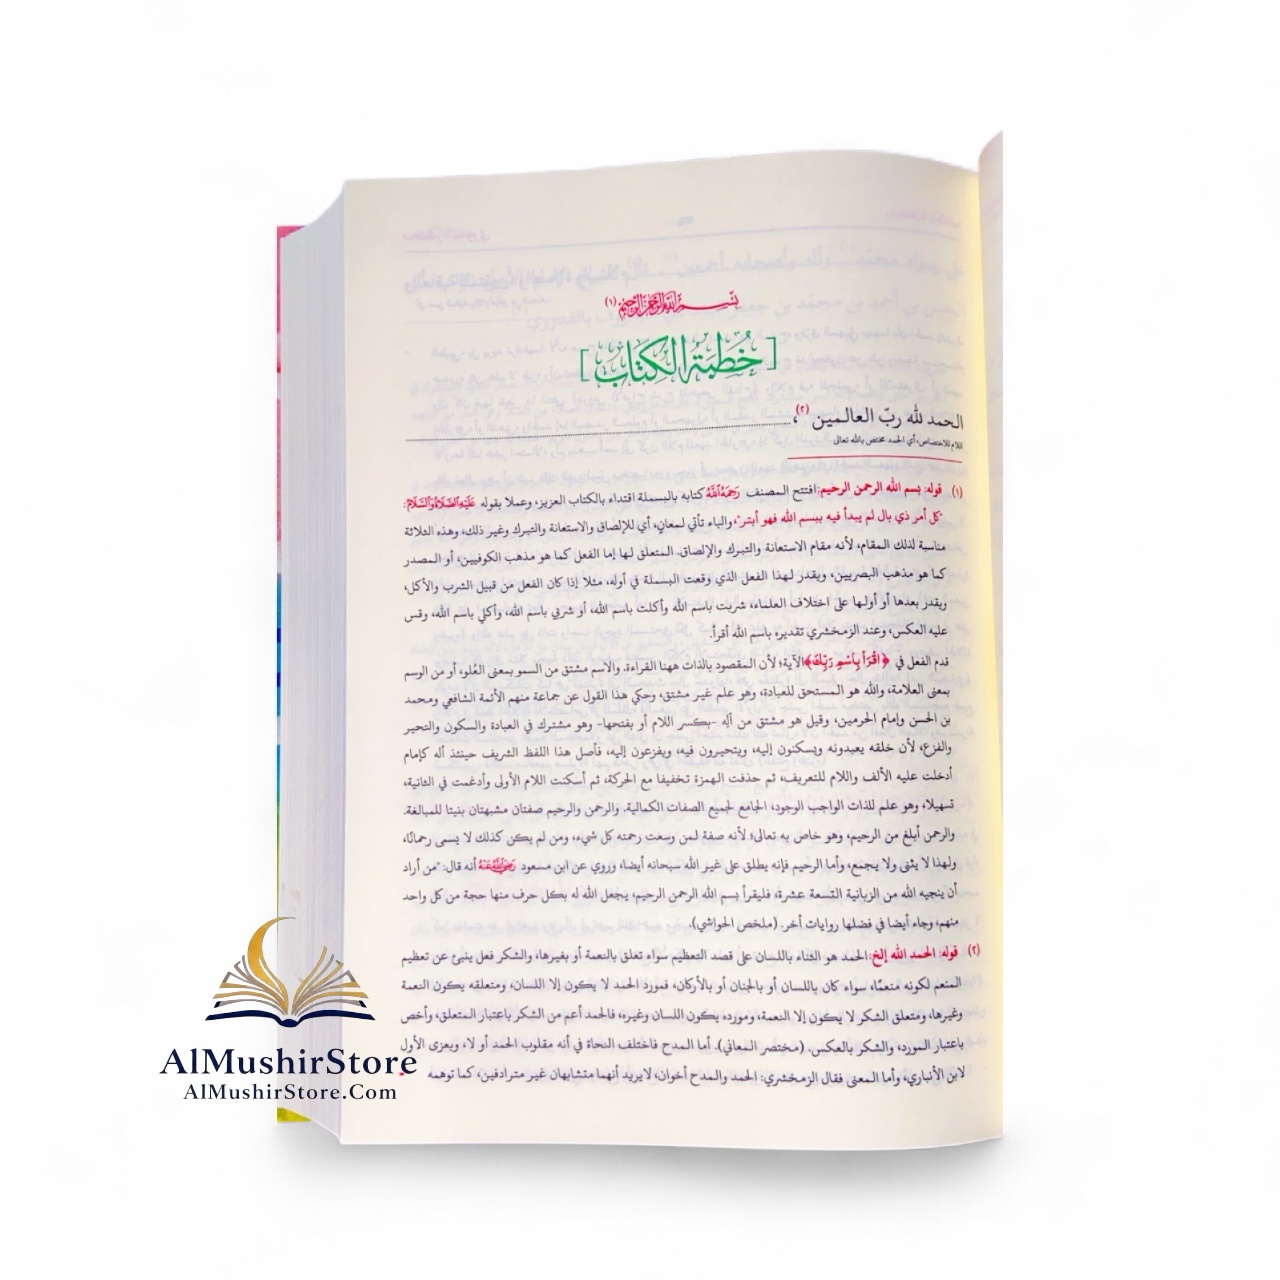 بسم الله الرحمن الرحيم (١)
[خُطبَةُ الكِتَاب]
الحمد لله ربّ العالمين (٢)،
اللام للاختصاص، أي الحمد مختص بالله تعالى
(١) قوله: بسم الله الرحمن الرحيم: افتتح المصنف رَحِمَهُ اللهُ كتابه بالبسملة اقتداء بالكتاب العزيز، وعملا بقوله عَلَيْهِ الصَّلَاةُ وَالسَّلَامُ:
"كل أمر ذي بال لم يبدأ فيه ببسم الله فهو أبتر"، والباء تأتي لمعانٍ، أي للإلصاق والاستعانة والتبرك وغير ذلك، وهذه الثلاثة
مناسبة لذلك المقام، لأنه مقام الاستعانة والتبرك والإلصاق. المتعلق لها إما الفعل كما هو مذهب الكوفيين، أو المصدر
كما هو مذهب البصريين، ويقدر لهذا الفعل الذي وقعت البسملة في أوله، مثلا إذا كان الفعل من قبيل الشرب والأكل،
ويقدر بعدها أو أولها على اختلاف العلماء، شربت باسم الله وأكلت باسم الله، أو شربي باسم الله، وأكلي باسم الله، وقس
عليه العكس، وعند الزمخشري تقديره باسم الله أقرأ.
قدم الفعل في ﴿اقْرَأْ بِاسْمِ رَبِّكَ﴾ الآية؛ لأن المقصود بالذات ههنا القراءة. والاسم مشتق من السمو بمعنى العُلو، أو من الوسم
بمعنى العلامة، والله هو المستحق للعبادة، وهو علم غير مشتق، وحكي هذا القول عن جماعة منهم الأئمة الشافعي ومحمد
بن الحسن وإمام الحرمين، وقيل هو مشتق من آلِه -بكسر اللام أو بفتحها- وهو مشترك في العبادة والسكون والتحير
والفزع، لأن خلقه يعبدونه ويسكنون إليه، ويتحيرون فيه، ويفزعون إليه، فأصل هذا اللفظ الشريف حينئذ أله كإمام
أدخلت عليه الألف واللام للتعريف، ثم حذفت الهمزة تخفيفا مع الحركة، ثم أسكنت اللام الأولى وأدغمت في الثانية،
تسهيلا، وهو علم للذات الواجب الوجود، الجامع لجميع الصفات الكمالية. والرحمن والرحيم صفتان مشبهتان بنيتا للمبالغة.
والرحمن أبلغ من الرحيم، وهو خاص به تعالى؛ لأنه صفة لمن وسعت رحمته كل شيء، ومن لم يكن كذلك لا يسمى رحمانًا،
ولهذا لا يثنى ولا يجمع، وأما الرحيم فإنه يطلق على غير الله سبحانه أيضا، وروي عن ابن مسعود رَضِيَ اللهُ عَنْهُ أنه قال: "من أراد
أن ينجيه الله من الزبانية التسعة عشرة، فليقرأ بسم الله الرحمن الرحيم، يجعل الله له بكل حرف منها حجة من كل واحد
منهم، وجاء أيضا في فضلها روايات أخر. (ملخص الحواشي).
(٢) قوله: الحمد الله إلخ: الحمد هو الثناء باللسان على قصد التعظيم سواء تعلق بالنعمة أو بغيرها، والشكر فعل ينبئ عن تعظيم
المنعم لكونه منعمًا، سواء كان باللسان أو بالجنان أو بالأركان، فمورد الحمد لا يكون إلا اللسان، ومتعلقه يكون النعمة
وغيرها، ومتعلق الشكر لا يكون إلا النعمة، ومورده يكون اللسان وغيره، فالحمد أعم من الشكر باعتبار المتعلق، وأخص
باعتبار المورد، والشكر بالعكس. (مختصر المعاني). أما المدح فاختلف النحاة في أنه مقلوب الحمد أو لا، ويعزى الأول
لابن الأنباري، وأما المعنى فقال الزمخشري: الحمد والمدح أخوان، لا يريد أنهما متشابهان غير مترادفين، كما توهمه
AlMushirStore
AlMushirStore.Com